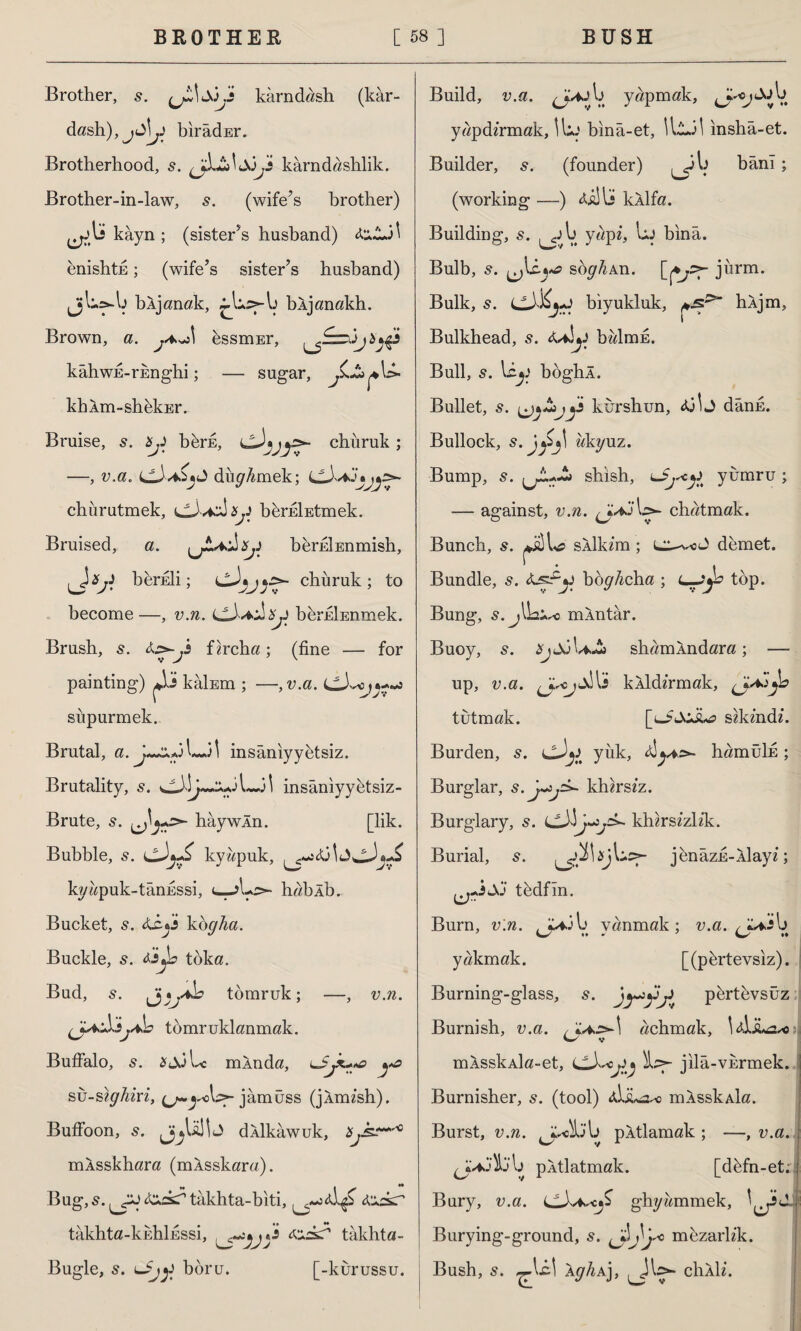 BROTHER [ 58 ] BUSH
Brother, s. قرنداش kàrndash (kàr-
dash), برادر bìrādEr.
Brotherhood, s. قرنداشلق kàrndashlik.
Brother-in-law, s. (wife's brother)
قاین kàyn ; (sister's husband) انشته
ènishtE ; (wife's sister's husband)
باجناق bÀjanak, باجناخ bÀjanakh.
Brown, a. اسمر èssmEr, قهوه‌رنكی
kàhwE-rEnghi ; — sugar, خام شكر
khÀm-shèkEr.
Bruise, s. بره bèrE, چوروك chùruk ;
—, v.a. دوكمك dùghmek ; چورتمك
chùrutmek, بره‌لتمك bèrElEtmek.
Bruised, a. بره‌لنمش bèrElEnmish,
بره‌لی bèrEli ; چوروك chùruk ; to
become —, v.n. بره‌لنمك bèrElEnmek.
Brush, s. فرچه fìrcha ; (fine — for
painting) قلم kàlEm ; —, v.a. سپورمك
sùpurmek.
Brutal, a. انسانیتسز insāniyyètsiz.
Brutality, s. انسانیتسزلك insāniyyètsiz-
Brute, s. حیوان hàywĀn. [lik.
Bubble, s. كپوك kyùpuk, كپوك دانه‌سی
kyùpuk-tānEssi, حباب hàbĀb.
Bucket, s. قوغه kògha.
Buckle, s. طوقه tòka.
Bud, s. طومروق tòmruk ; —, v.n.
طومرقلنمق tòmruklanmak.
Buffalo, s. مانده mÀnda, صو صغیری
sù-sìghìri, جاموس jàmūss (jÀmish).
Buffoon, s. دالقاوق dÀlkàwuk, مسخره
mÀsskhara (mÀsskara).
Bug, s. تخته بیتی tàkhta-bìti, تخته كهله‌سی
tàkhta-kEhlEssi, تخته قوروسی tàkhta-
Bugle, s. بوری bòru. [-kùrussu.
Build, v.a. یاپمق yàpmak, یاپدیرمق
yàpdirmak, بنا bìnā-et, انشا inshā-et.
Builder, s. (founder) بانی bānī ;
(working —) قالفه kÀlfa.
Building, s. یاپی yàpi, بنا bìnā.
Bulb, s. صوغان sòghAn. [جرم jùrm.
Bulk, s. بیوكلك bìyukluk, حجم hÀjm,
Bulkhead, s. بولمه bùlmE.
Bull, s. بوغا bòghĀ.
Bullet, s. قورشون kùrshun, دانه dānE.
Bullock, s. اوكوز ùkyuz.
Bump, s. شیش shìsh, یومری yùmru ;
— against, v.n. چاتمق chàtmak.
Bunch, s. صالقم sÀlkim ; دمت dèmet.
Bundle, s. بوغچه bòghcha ; طوپ tòp.
Bung, s. منطار mÀntàr.
Buoy, s. شماندره shàmÀndara ; —
up, v.a. قالدیرمق kÀldirmak, طوتمق
tùtmak. [صقندی sìkindi.
Burden, s. یوك yùk, حموله hàmūlE ;
Burglar, s. خرسز khìrsiz.
Burglary, s. خرسزلك khìrsizlik.
Burial, s. جنازه الایی jènāzE-Àlayi ;
تدفین tèdfīn.
Burn, v.n. یانمق yànmak ; v.a. یاقمق
yàkmak. [(pèrtevsiz).
Burning-glass, s. پرتوسوز pèrtèvsūz
Burnish, v.a. آچمق àchmak, مصقله
mÀsskAla-et, جلا ویرمك jìlā-vErmek.
Burnisher, s. (tool) مصقله mÀsskAla.
Burst, v.n. پاتلامق pÀtlamak ; —, v.a.
پاتلاتمق pÀtlatmak. [dèfn-et.
Bury, v.a. كوممك ghyùmmek, دفن
Burying-ground, s. مزارلق mèzarlik.
Bush, s. آغاج ÀghAj, چالی chÀli.